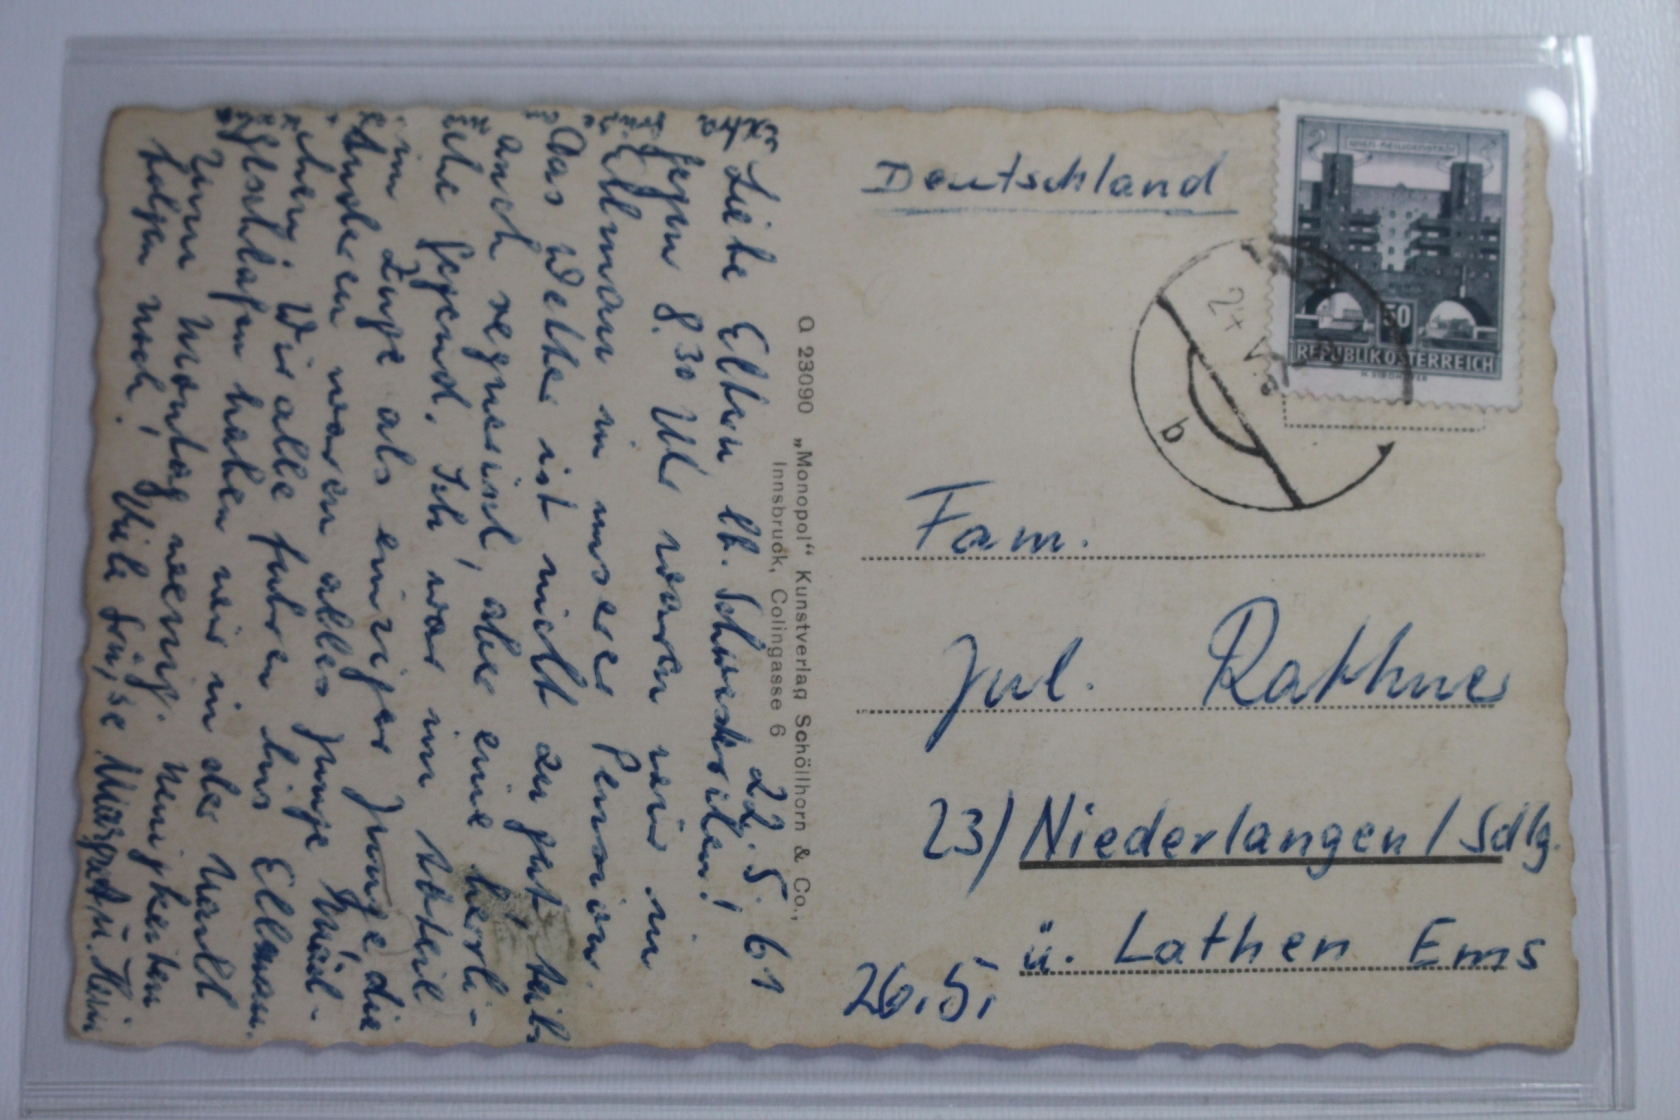 22. 5. 61
Liebe Eltern lb. Schwesterchen!
Gegen 8.30 Uhr waren wir in
Ellmau in unserer Pension.
Das Wetter ist nicht zu gut, teils
auch regnerisch, aber eine herrli-
che Gegend. Ich war im Abteil
im Zuge als einziger Junge, die
Anderen waren alles junge Mäd-
chen. Wir alle fuhren bis Ellmau.
Geschlafen haben wir in der Nacht
zum Montag wenig. Neuigkeiten
folgen noch! Viele Grüße Margret u. Heini
Q 23090 „Monopol“ Kunstverlag Schöllhorn & Co.,
Innsbruck, Colingasse 6
Deutschland
WIEN-HEILIGENSTADT
50
REPUBLIK ÖSTERREICH
24. V.
b
Fam.
Jul. Rathner
23) Niederlangen / Sdlg.
ü. Lathen Ems
26.5.